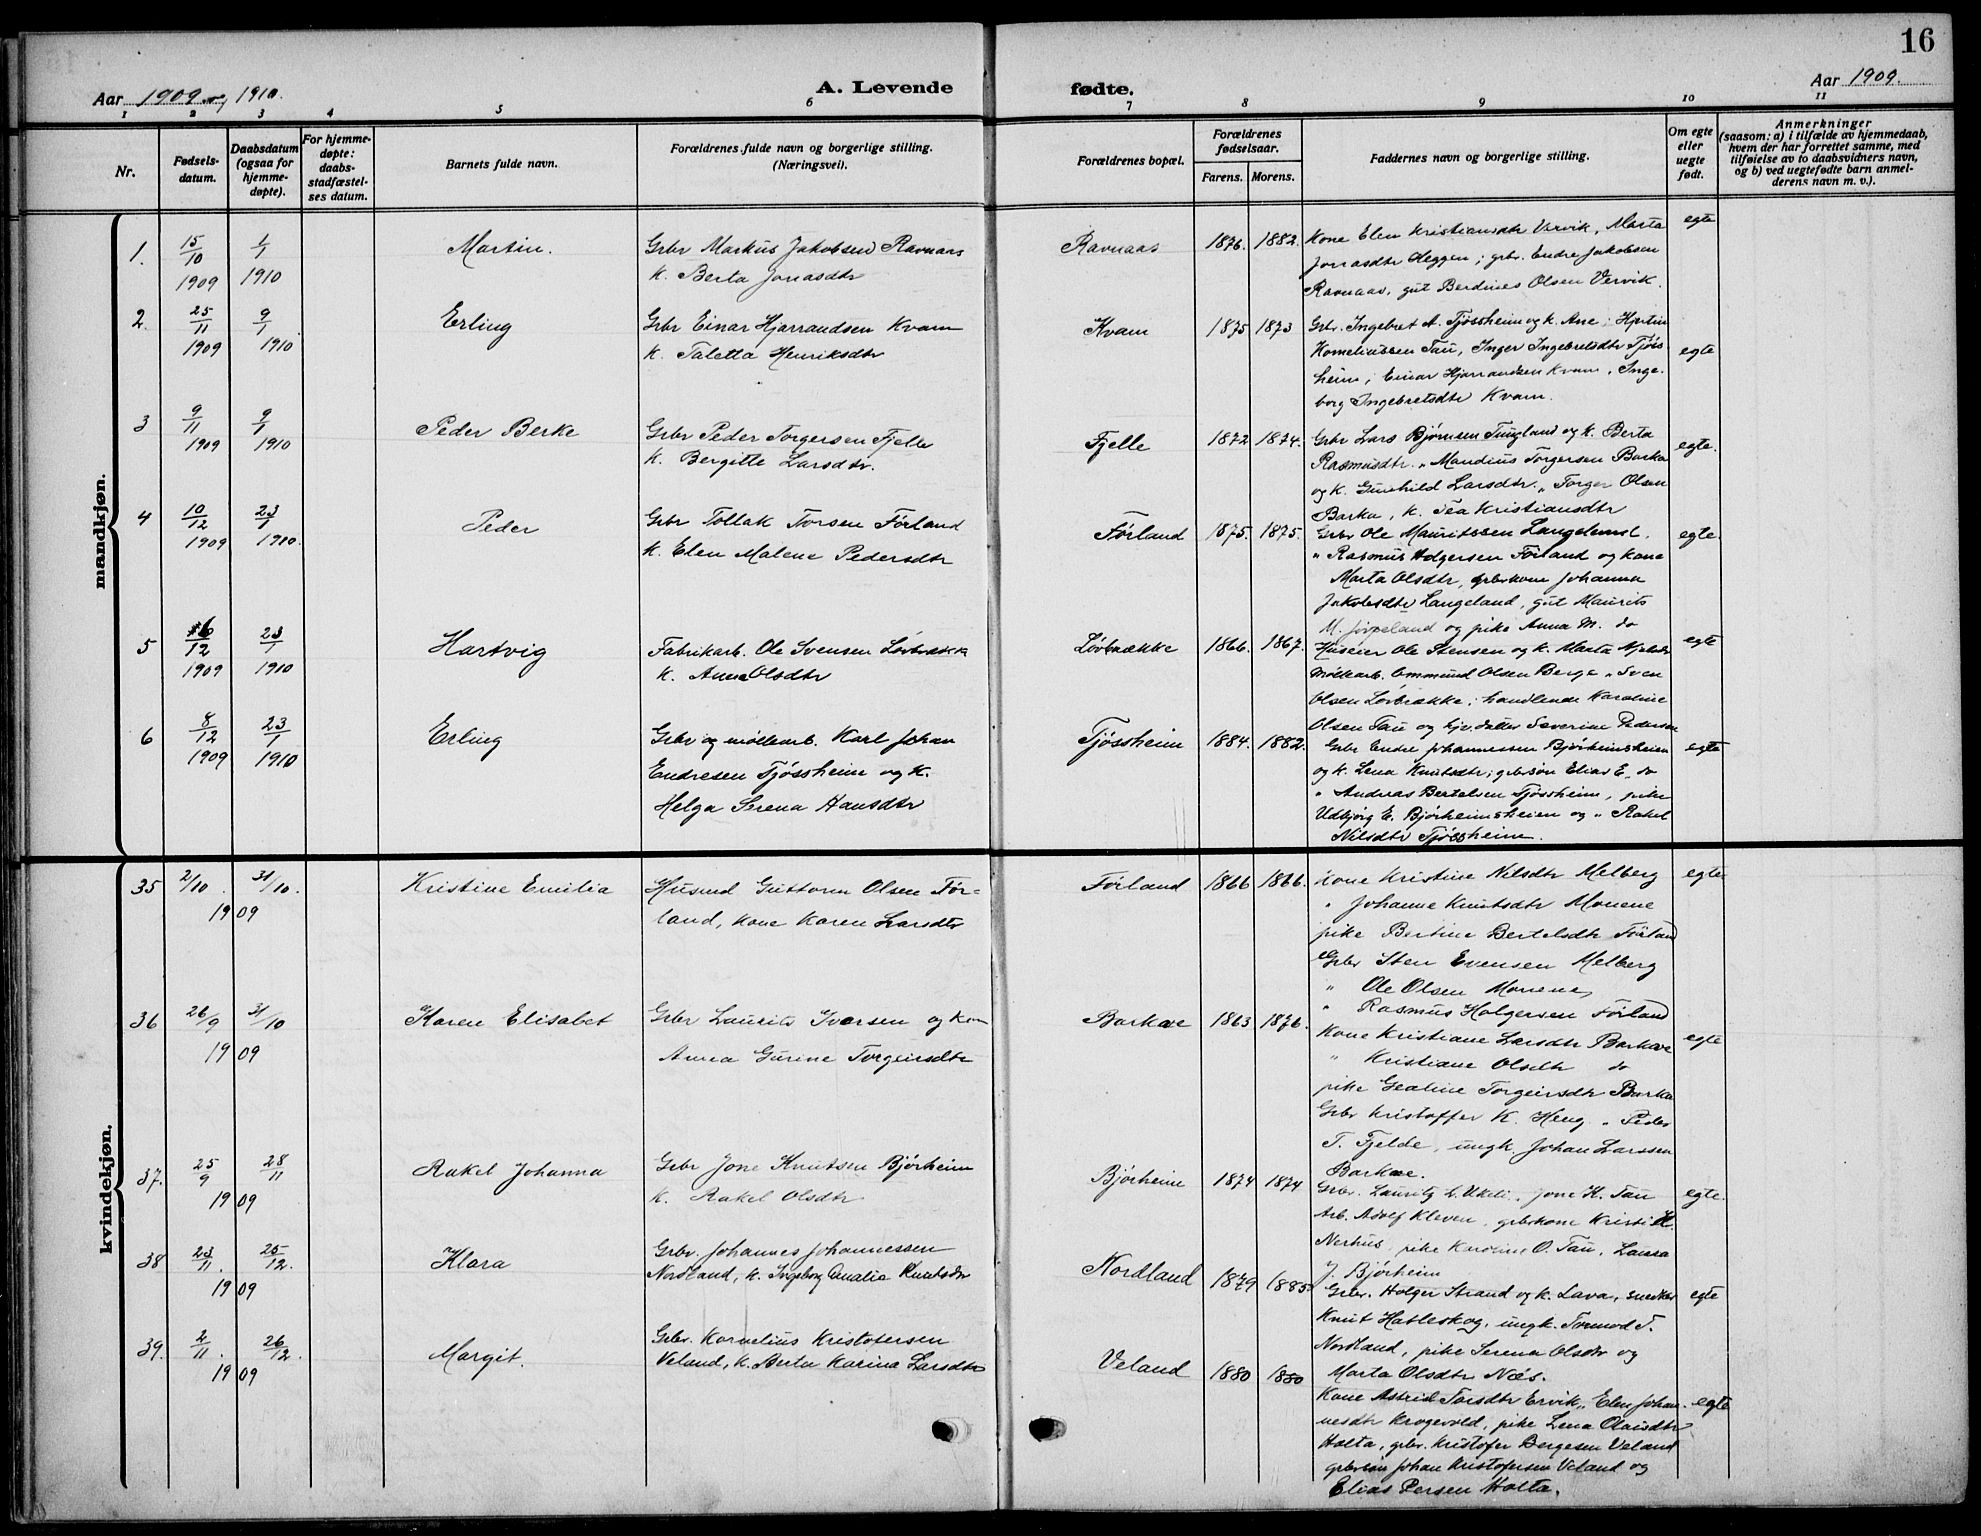 16
Aar 1909 og 1910.
A. Levende
fødte.
Aar 1909.
1 2 3 4 5 6 7 8 9 10 11
Nr.
Fødsels-
datum.
Daabsdatum
(ogsaa for
hjemme-
døpte).
For hjemme-
døpte:
daabs-
stadfæstel-
ses datum.
Barnets fulde navn.
Forældrenes fulde navn og borgerlige stilling.
(Næringsvei).
Forældrenes bopæl.
Forældrenes
fødselsaar.
Farens. Morens.
Faddernes navn og borgerlige stilling.
Om egte
eller
uegte
født.
Anmerkninger
(saasom: a) i tilfælde av hjemmedaab,
hvem der har forrettet samme, med
tilføielse av to daabsvidners navn,
og b) ved uegtefødte barn anmel-
derens navn m. v.).
mandkjøn.
1. 15/10 1909 1/1 1910 Martin.
Grbr Markus Jakobsen Ravnaas
k. Berta Jonasdtr
Ravnaas 1876. 1882.
Kone Elen Kristiansdtr Vervik, Marta
Jonasdtr Heggen; grbr. Endre Jakobsen
Ravnaas, gut Berdines Olsen Vervik.
egte
2. 25/11 1909 9/1 1910 Erling
Grbr Einar Hjarrandsen Kvam
k. Taletta Henriksdtr
Kvam 1875 1873
Grbr. Ingebret A. Tjøssheim og k. Ane; Kjetin
Korneliussen Tau, Inger Ingebretsdtr Tjøss
heim; Einar Hjarrandsen Kvam, Inge-
borg Ingebretsdtr Kvam.
egte
3 9/11 1909 9/1 1910 Peder Berke
Grbr Peder Torgersen Fjelle
k. Bergitte Larsdtr.
Fjelle 1872 1874.
Grbr Lars Bjørnsen Tungland og k. Berta
Rasmusdtr. " Mandius Torgersen Barka
og k. Gunhild Larsdtr. " Torger Olsen
Barka, k. Tea Kristiansdtr
egte.
4 10/12 1909 23/1 1910. Peder
Grbr Tollak Torsen Førland
k. Elen Malene Pedersdtr
Førland 1875. 1875.
Grbr Ole Mauritssen Langeland.
" Rasmus Holgersen Førland og kone
Marta Olsdtr, grbrkone Johanna
Jakobsdtr Langeland, gut Maurits
M. Jørpeland og pike Anna M. do
egte.
5 16/12 1909 23/1 1910 Hartvig
Fabrikarb. Ole Svensen Løvbrække
k. Anna Olsdtr
Løvbrække 1866. 1867.
Huseier Ole Stensen og k. Marta
Møllearb. Ommund Olsen Berge " Sven
Olsen Løvbrække; handlende Karoline
Olsen Tau og hjv. datter Severine Pedersen
egte
6 8/12 1909 23/1 1910 Erling
Grbr og møllearb. Karl Johan
Endresen Tjøssheim og k.
Helga Serena Hansdtr
Tjøssheim 1884. 1882.
Grbr Endre Johannessen Bjørheimsheien
og k. Lena Knutsdtr; grbrsøn Elias E. do
" Andreas Bertelsen Tjøssheim, pike
Udbjørg E. Bjørheimsheien og " Rakel
Nilsdtr Tjøssheim.
egte
kvindekjøn.
35 2/10. 31/10. 1909 Kristine Emilia
Husmd Guttorm Olsen Før-
land, kone Karen Larsdtr
Førland 1866 1866.
Kone Kristine Nilsdtr Melberg
" Johanne Knutsdtr Monene
pike Bertine Bertelsdtr Førland
Grbr Sten Evensen Melberg
" Ole Olsen Monene,
" Rasmus Holgersen Førland
egte
36 26/9 31/10 1909 Karen Elisabet
Grbr Laurits Iversen og kone
Anna Gurine Torgeirsdtr
Barkae 1863 1876.
Kone Kristiane Larsdtr Barkae
" Kristiane Olsdtr do
pike Gealine Torgeirsdtr Barka
Grbr Kristoffer K. Heng " Peder
T. Fjelde, ungk. Johan Larssen
Barkae.
egte
37. 25/9 28/11 1909 Rakel Johanna
Grbr Jone Knutsen Bjørheim
k. Rakel Olsdtr
Bjørheim 1874 1874
Grbr. Lauritz L. Ukeli. Jone K. Tau
Arb. Adolf Kleven, grbrkone Kristi H.
Nerhus, pike Karoline O. Tau, Laura
J. Bjørheim
egte.
38 23/11. 25/12. 1909 Klara
Grbr. Johannes Johannessen
Nordland, k. Ingeborg Amalia Knutsdtr
Nordland 1879 1885
Grbr. Holger Strand og k. Lava, snedker
Knut Hatleskog, ungk. Tormod T.
Nordland, pike Serena Olsdtr og
Marta Olsdtr Næs.
egte
39. 2/11 26/12. 1909 Margit.
Grbr. Kornelius Kristofersen
Veland, k. Berta Karina Larsdtr
Veland 1880 1880
Kone Astrid Torsdtr Ervik, " Elen Johan-
nesdtr Krogevold, pike Lena Olausdtr
Holta, grbr. Kristofer Bergesen Veland
grbrsøn Johan Kristofersen Veland og
Elias Persen Holta.
egte